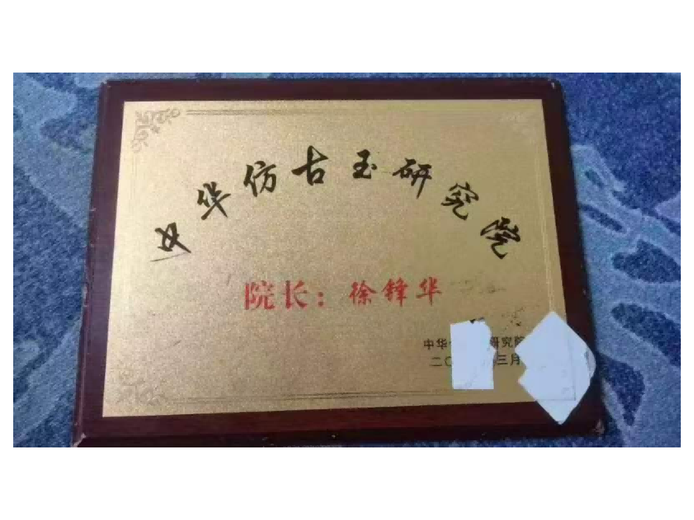 中华仿古玉研究院
院长：徐锋华
中华 研究院
二〇 三月